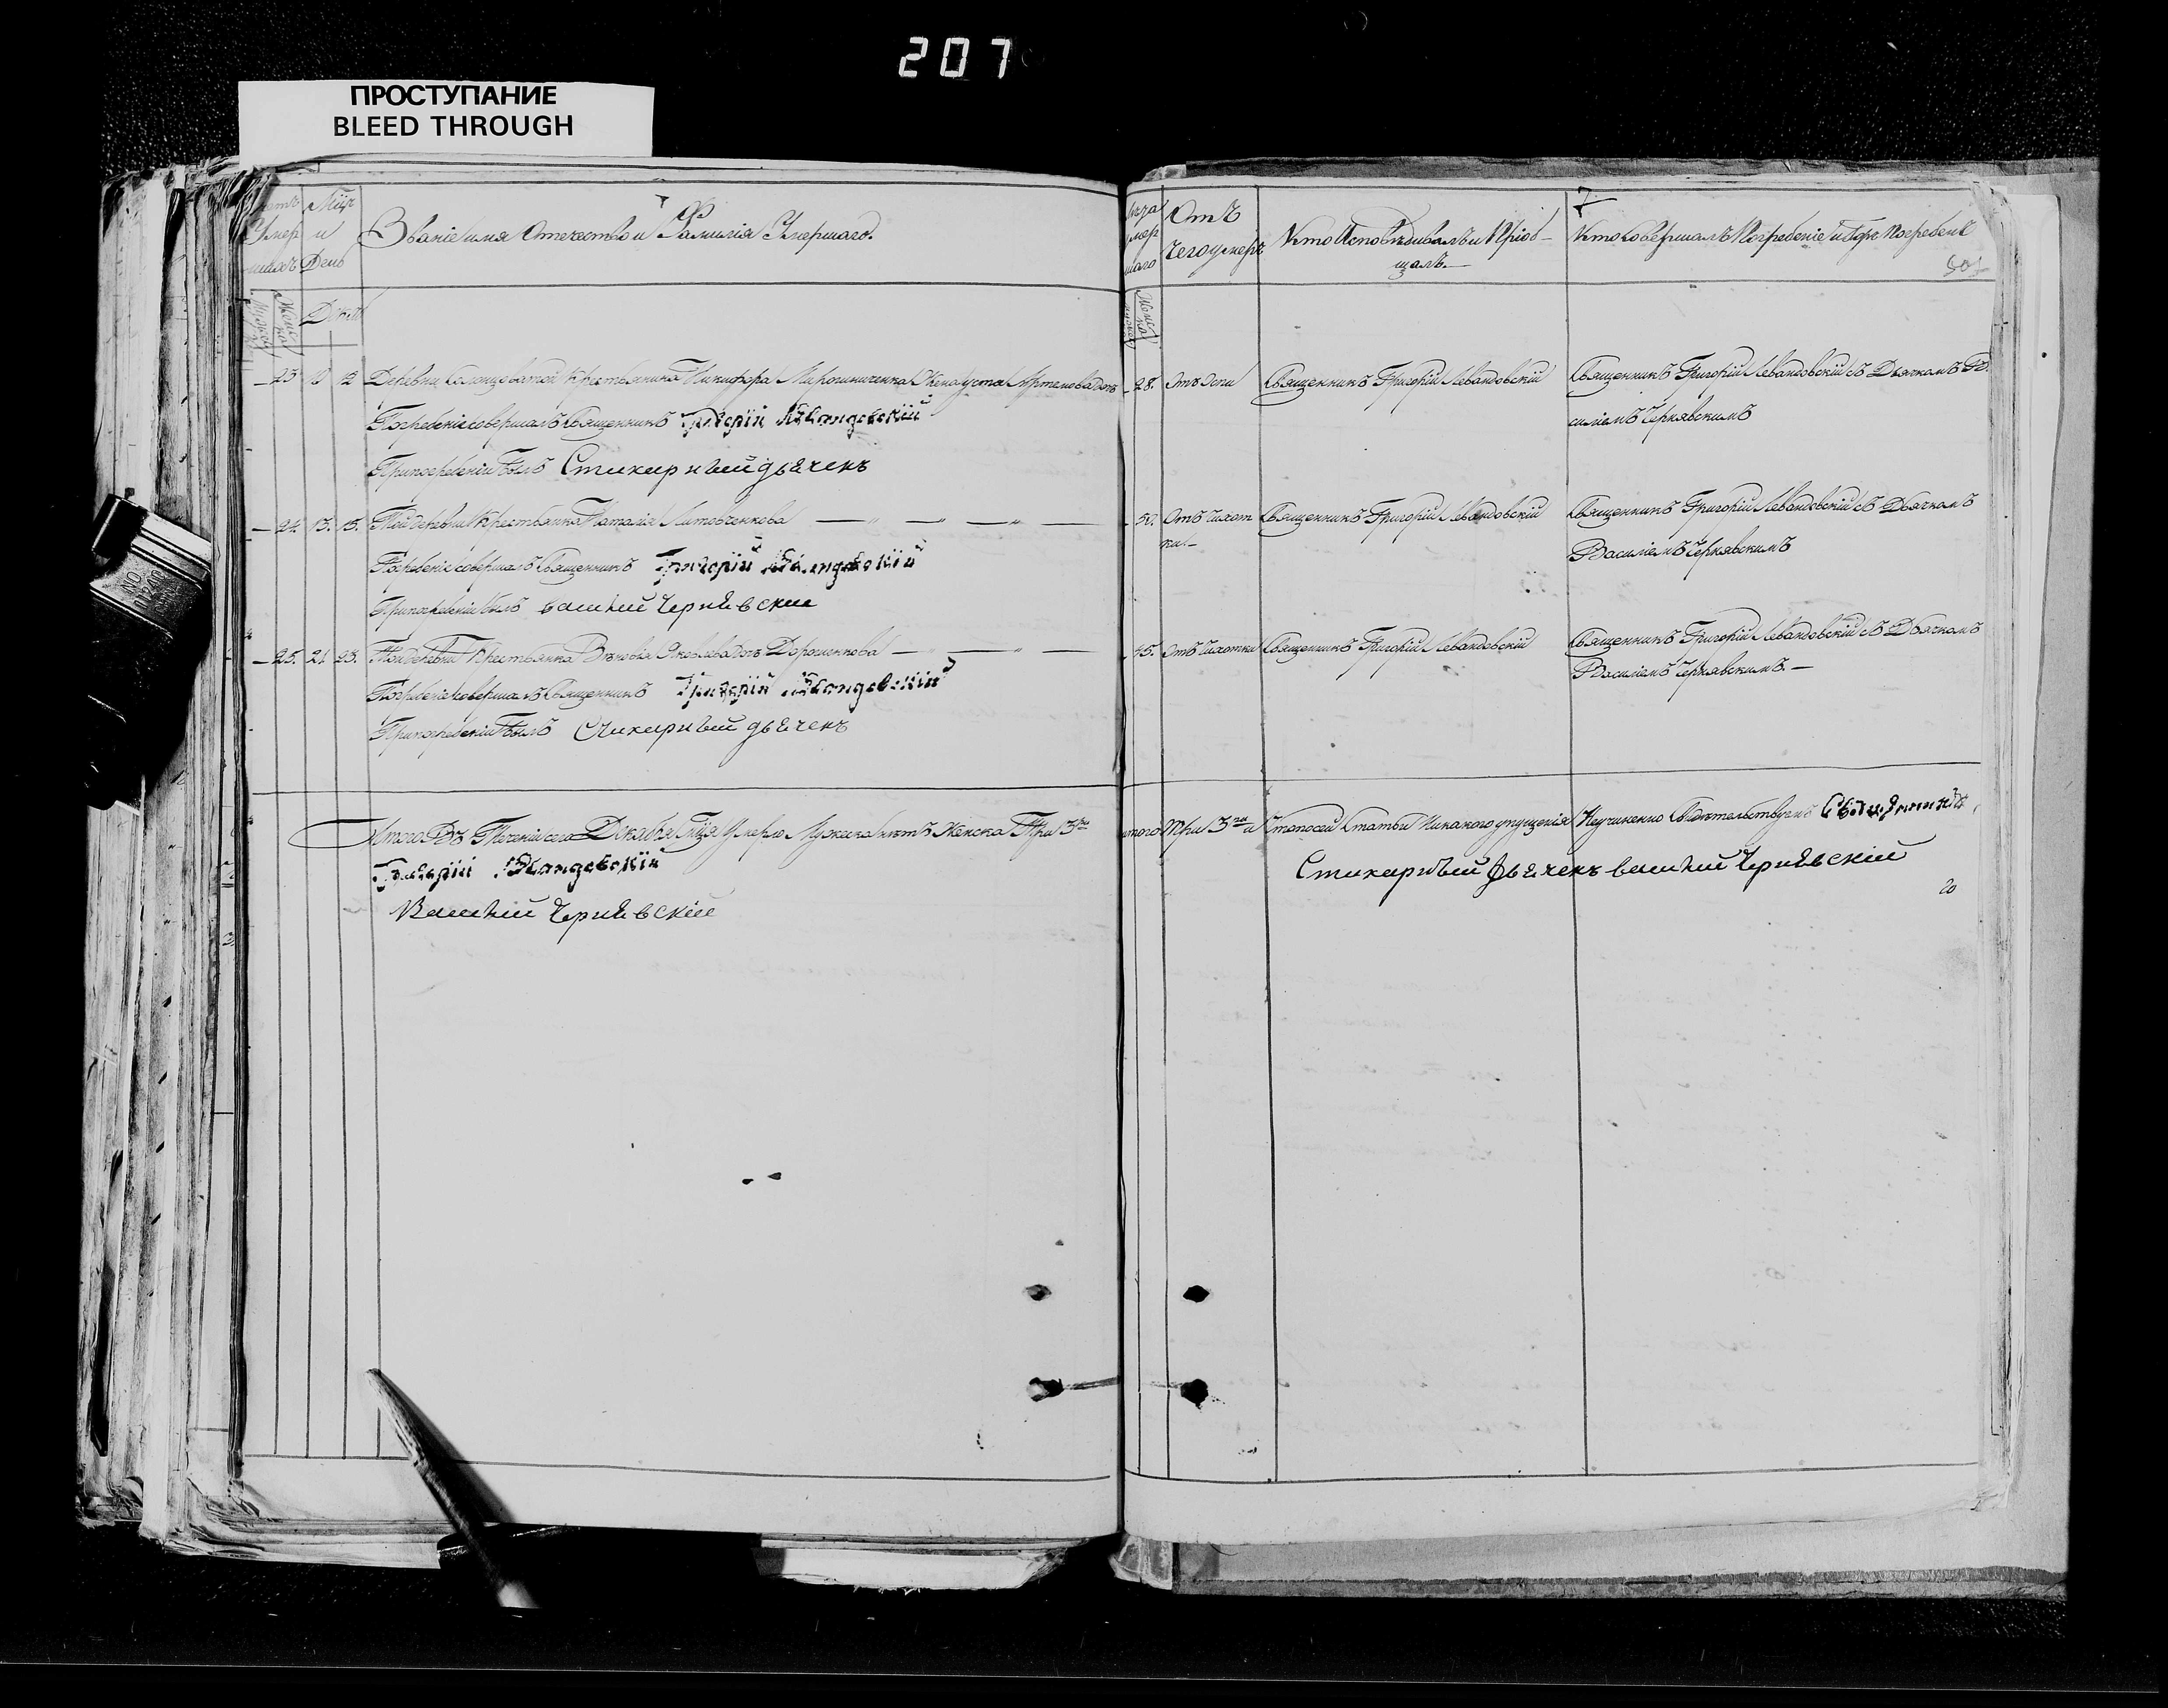 207
ПРОСТУПАНИЕ
BLEED THROUGH
Умер Мцр и
шихъ День
Званіе имя Отечество и Фамилія Умершаго.
Декаб
23 10 12 Деревни Солонцеватой Крестьянина Никифора Мирошниченка Жена Устя Артемова дочь
Погребеніе совершалъ Священникъ Григорій Левандовскій
При погребеніи былъ Стихарный дьячекъ
24. 13. 15. Той деревни Крестьянка Наталія Литовченкова
Погребеніе совершалъ Священникъ Григорій Левандовскій
При погребеніи былъ Василий Чернявские
25. 21. 23. Той деревни Крестьянка Яковлева дочь Дорошенкова
Погребеніе совершалъ Священникъ Григорій Левандовскій
При погребеніи былъ Стихарный дьячекъ
Итого Въ Теченіи сего Декабря Мца Умерло Мужска нетъ Женска Три 3ри
Григорій Левандовскій
Василий Чернявскіи
Отъ
чего умеръ
Кто Исповѣдивалъ и Пріоб-
щалъ.
7
Кто Совершалъ Погребеніе и Где Погребенъ
28. Отъ Оспи Священникъ Григорій Левандовскій Священникъ Григорій Левандовскій съ Дьячкомъ Ва
силіемъ Чернявскимъ
50. Отъ Чихот Священникъ Григорій Левандовскій Священникъ Григорій Левандовскій съ Дьячкомъ
ки.
Василіемъ Чернявскимъ
45. Отъ Чихотки Священникъ Григорій Левандовскій Священникъ Григорій Левандовскій съ Дьячкомъ
Василіемъ Чернявскимъ.
итого Три 3ри и Что по сей Статьи Никакого упущенія Неучиненно Свидетельствуемъ Священникъ
Стихарный Дьячекъ Василий Чернявскіи
20